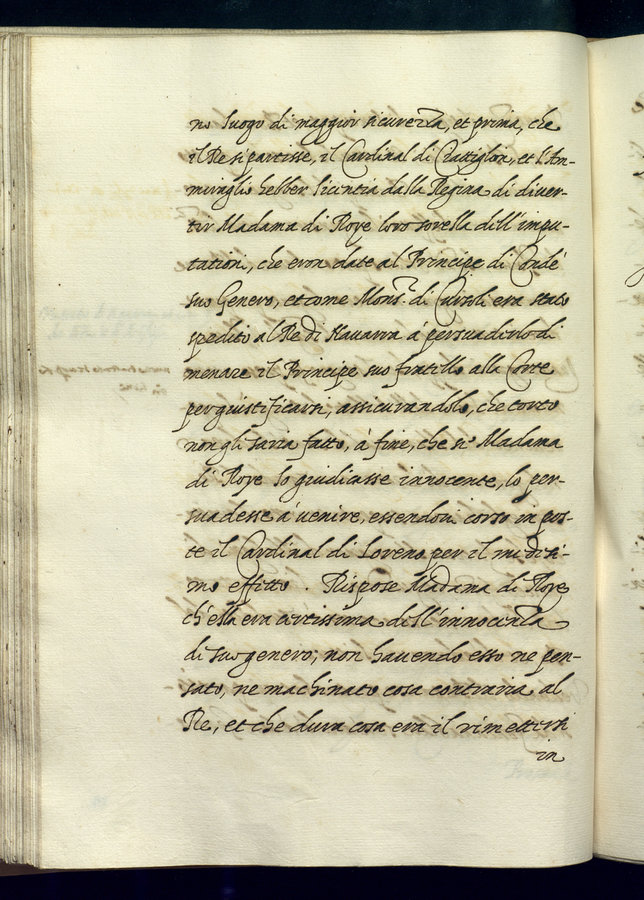 no luogo di maggior sicurezza, et prima, che
il Re si partisse, il Cardinal di Ciattiglon, et l'Am-
miraglio hebber licentia dalla Regina di diver-
tir Madama di Roye loro sorella dell'impu-
tationi, che eron date al Principe di Condé
suo Genero, et come Mons.r di Cursols era stato
spedito al Re di Navarra à persuaderlo di
menare il Principe suo fratello alla Corte
per giustificarsi, assicurandolo, che torto
non gli saria fatto, à fine, che se Madama
di Roye lo giudicasse innocente, lo per-
suadesse à venire, essendoui corso in pos-
te il Cardinal di Loreno per il medesi-
mo effetto. Rispose Madama di Roye
ch'ella era certissima dell'innocenza
di suo genero; non havendo esso ne pen-
sato, ne machinato cosa contraria al
Re, et che dura cosa era il rimettersi
in